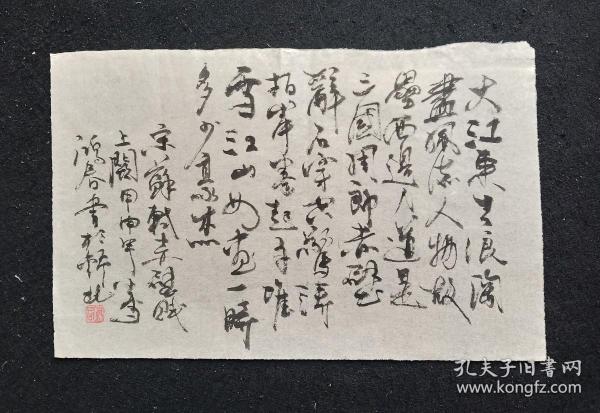 大江東去浪淘
盡風流人物故
壘西邊人道是
三國周郎赤壁
亂石穿空驚濤
拍岸卷起千堆
雪江山如畫一時
多少豪杰
宋蘇軾赤壁賦
上闋甲申年
鴻春書於
孔夫子旧书网
www.kongfz.com